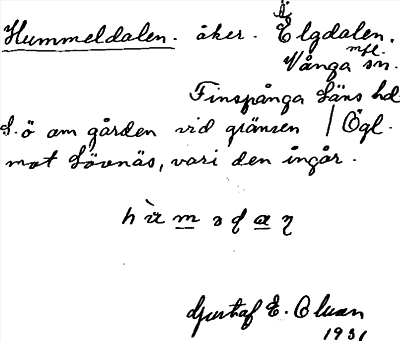 Hummeldalen. åker. Elgdalen.
Vånga sn.
Finspånga läns hd.
S.ö om gården vid gränsen / Ögl.
mot Lövnäs, vari den ingår.
Gustaf E. Olsson
1931